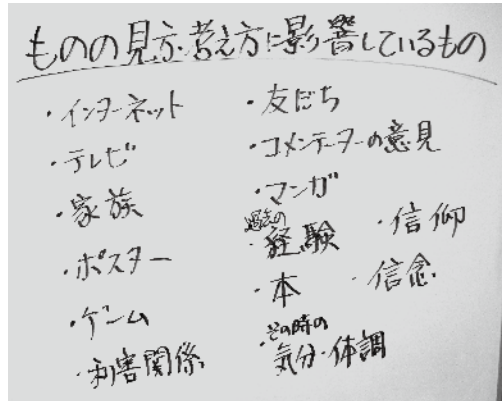 ものの見方・考え方に影響しているもの
・インターネット
・テレビ
・家族
・ポスター
・ゲーム
・利害関係
・友だち
・コメンテーターの意見
・マンガ
・過去の経験
・本
・その時の気分・体調
・信仰
・信念